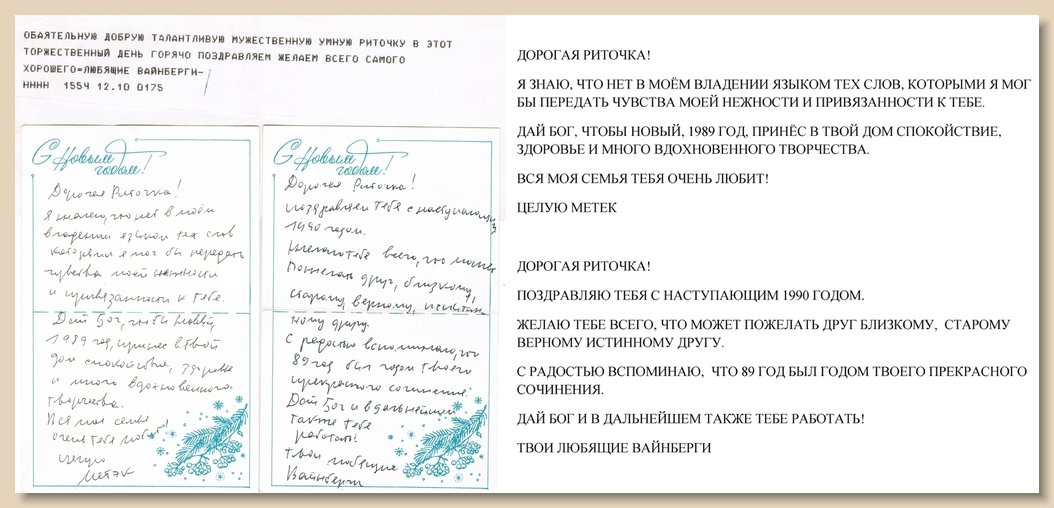 ОБАЯТЕЛЬНУЮ ДОБРУЮ ТАЛАНТЛИВУЮ МУЖЕСТВЕННУЮ УМНУЮ РИТОЧКУ В ЭТОТ
ТОРЖЕСТВЕННЫЙ ДЕНЬ ГОРЯЧО ПОЗДРАВЛЯЕМ ЖЕЛАЕМ ВСЕГО САМОГО
ХОРОШЕГО=ЛЮБЯЩИЕ ВАЙНБЕРГИ-
НННН 1554 12.10 0175
С Новым
годом!
Дорогая Риточка!
Я знаю, что нет в моём
владении языком тех слов
которыми я мог бы передать
чувства моей нежности
и привязанности к тебе.
Дай Бог, чтобы новый
1989 год, принёс в твой
дом спокойствие, здоровье
и много вдохновенного
творчества.
Вся моя семья
очень тебя любит!
Целую
Метек
С Новым
годом!
Дорогая Риточка!
Поздравляю тебя с наступающим
1990 годом.
Желаю тебе всего, что может
пожелать друг, близкому,
старому, верному, истин
ному другу.
С радостью вспоминаю, что
89 год был годом твоего
прекрасного сочинения.
Дай Бог и в дальнейшем
также тебе
работать!
Твои любящие
Вайнберги
ДОРОГАЯ РИТОЧКА!
Я ЗНАЮ, ЧТО НЕТ В МОЁМ ВЛАДЕНИИ ЯЗЫКОМ ТЕХ СЛОВ, КОТОРЫМИ Я МОГ
БЫ ПЕРЕДАТЬ ЧУВСТВА МОЕЙ НЕЖНОСТИ И ПРИВЯЗАННОСТИ К ТЕБЕ.
ДАЙ БОГ, ЧТОБЫ НОВЫЙ, 1989 ГОД, ПРИНЁС В ТВОЙ ДОМ СПОКОЙСТВИЕ,
ЗДОРОВЬЕ И МНОГО ВДОХНОВЕННОГО ТВОРЧЕСТВА.
ВСЯ МОЯ СЕМЬЯ ТЕБЯ ОЧЕНЬ ЛЮБИТ!
ЦЕЛУЮ МЕТЕК
ДОРОГАЯ РИТОЧКА!
ПОЗДРАВЛЯЮ ТЕБЯ С НАСТУПАЮЩИМ 1990 ГОДОМ.
ЖЕЛАЮ ТЕБЕ ВСЕГО, ЧТО МОЖЕТ ПОЖЕЛАТЬ ДРУГ БЛИЗКОМУ, СТАРОМУ
ВЕРНОМУ ИСТИННОМУ ДРУГУ.
С РАДОСТЬЮ ВСПОМИНАЮ, ЧТО 89 ГОД БЫЛ ГОДОМ ТВОЕГО ПРЕКРАСНОГО
СОЧИНЕНИЯ.
ДАЙ БОГ И В ДАЛЬНЕЙШЕМ ТАКЖЕ ТЕБЕ РАБОТАТЬ!
ТВОИ ЛЮБЯЩИЕ ВАЙНБЕРГИ